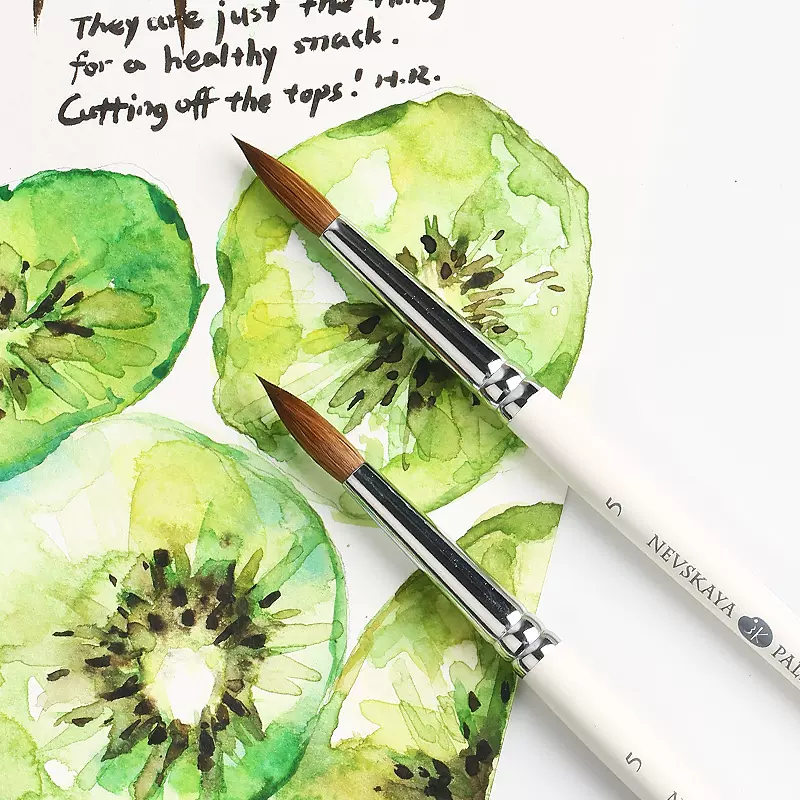 They are just the thing
for a healthy snack.
Cutting off the tops! H.R.
5
NEVSKAYA
5